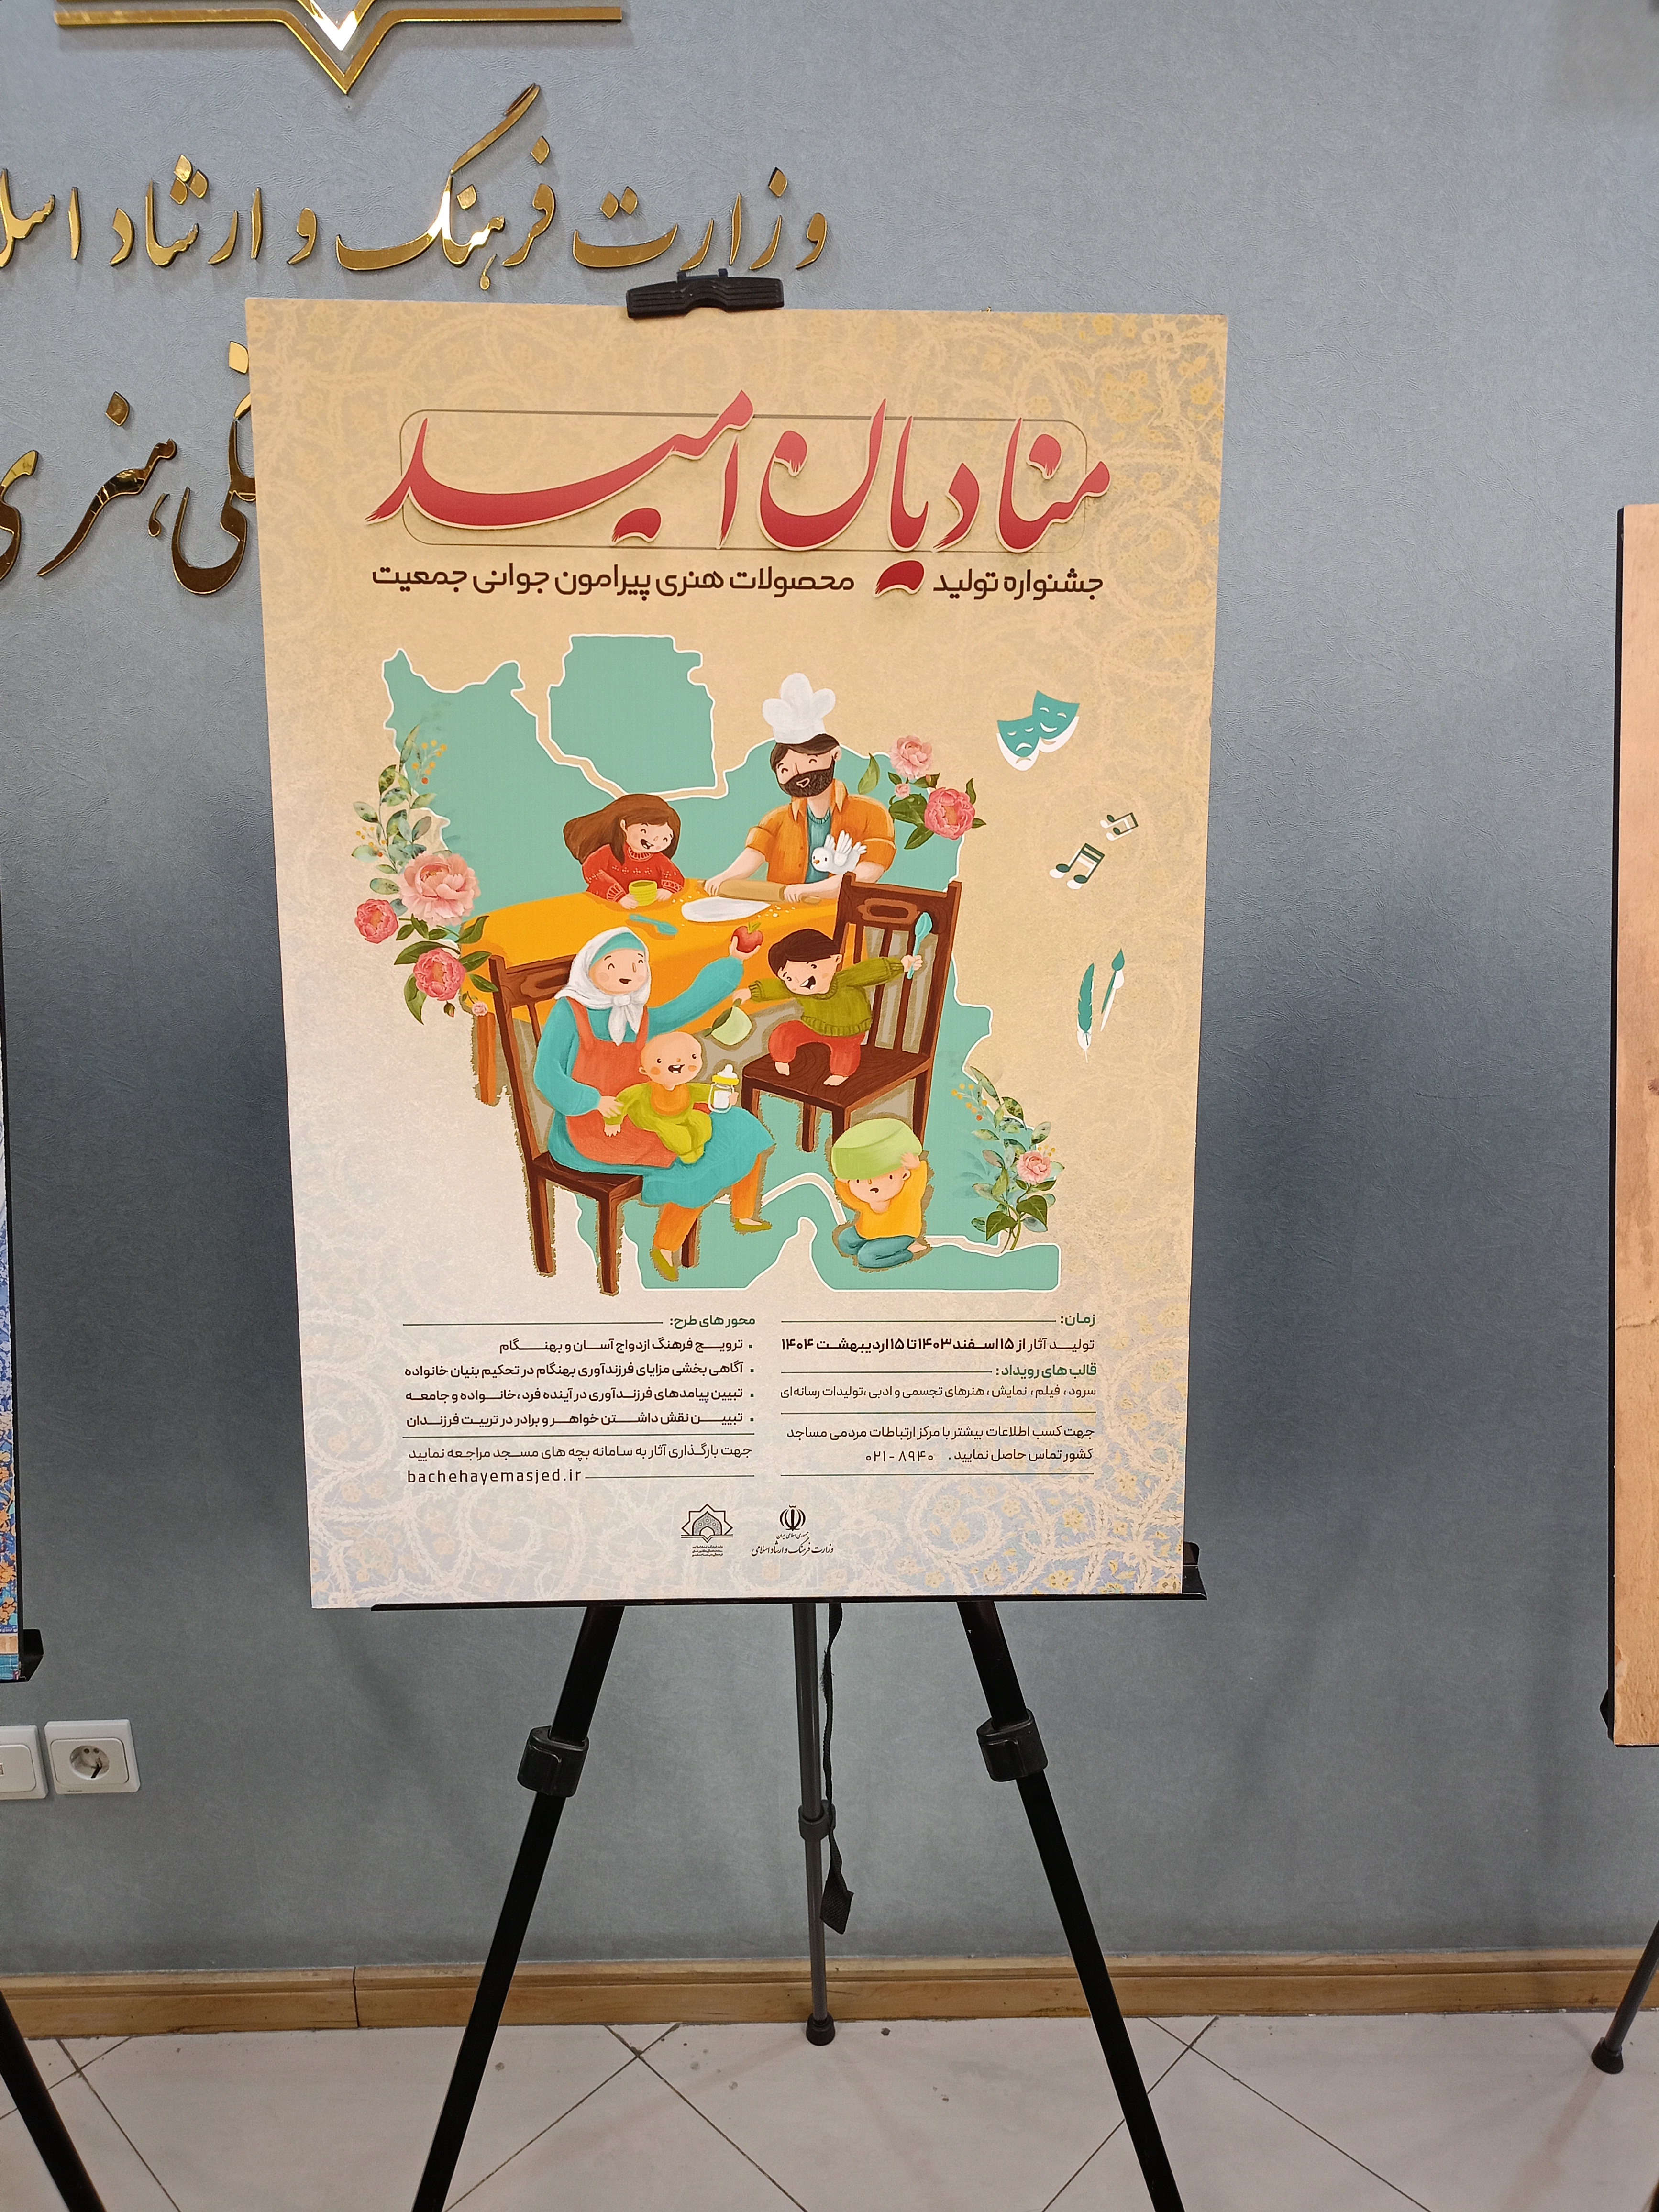 وزارت فرهنگ و ارشاد اسلا
هنری
منادیان امید
جشنواره تولید محصولات هنری پیرامون جوانی جمعیت
زمان:
تولید آثار از ۱۵ اسفند ۱۴۰۳ تا ۱۵ اردیبهشت ۱۴۰۴
قالب های رویداد:
سرود، فیلم، نمایش، هنرهای تجسمی و ادبی، تولیدات رسانه‌ای
جهت کسب اطلاعات بیشتر با مرکز ارتباطات مردمی مساجد
کشور تماس حاصل نمایید. ۸۹۴۰-۰۲۱
محور های طرح:
• ترویج فرهنگ ازدواج آسان و بهنگام
• آگاهی بخشی مزایای فرزندآوری بهنگام در تحکیم بنیان خانواده
• تبیین پیامدهای فرزندآوری در آینده فرد، خانواده و جامعه
• تبیین نقش داشتن خواهر و برادر در تربیت فرزندان
جهت بارگذاری آثار به سامانه بچه های مسجد مراجعه نمایید
bachehayemasjed.ir
جمهوری اسلامی ایران
وزارت فرهنگ و ارشاد اسلامی